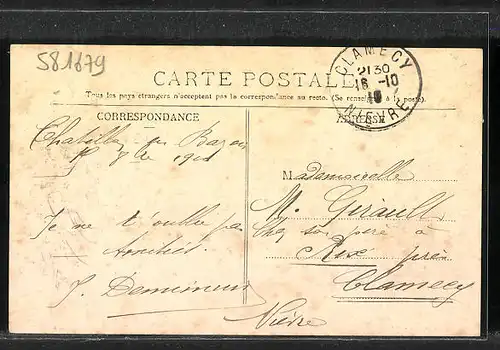 581679
CARTE POSTALE
Tous les pays étrangers n'acceptent pas la correspondance au recto. (Se renseigner à la poste).
CLAMECY
21 30
16 -10
10
NIÈVRE
CORRESPONDANCE
ADRESSE
Chatillon en Bazois
Mademoiselle
M. Girault
Chez son père à
Je ne t'oublie pas
Rix près
Amitiés
Clamecy
J.
Nièvre